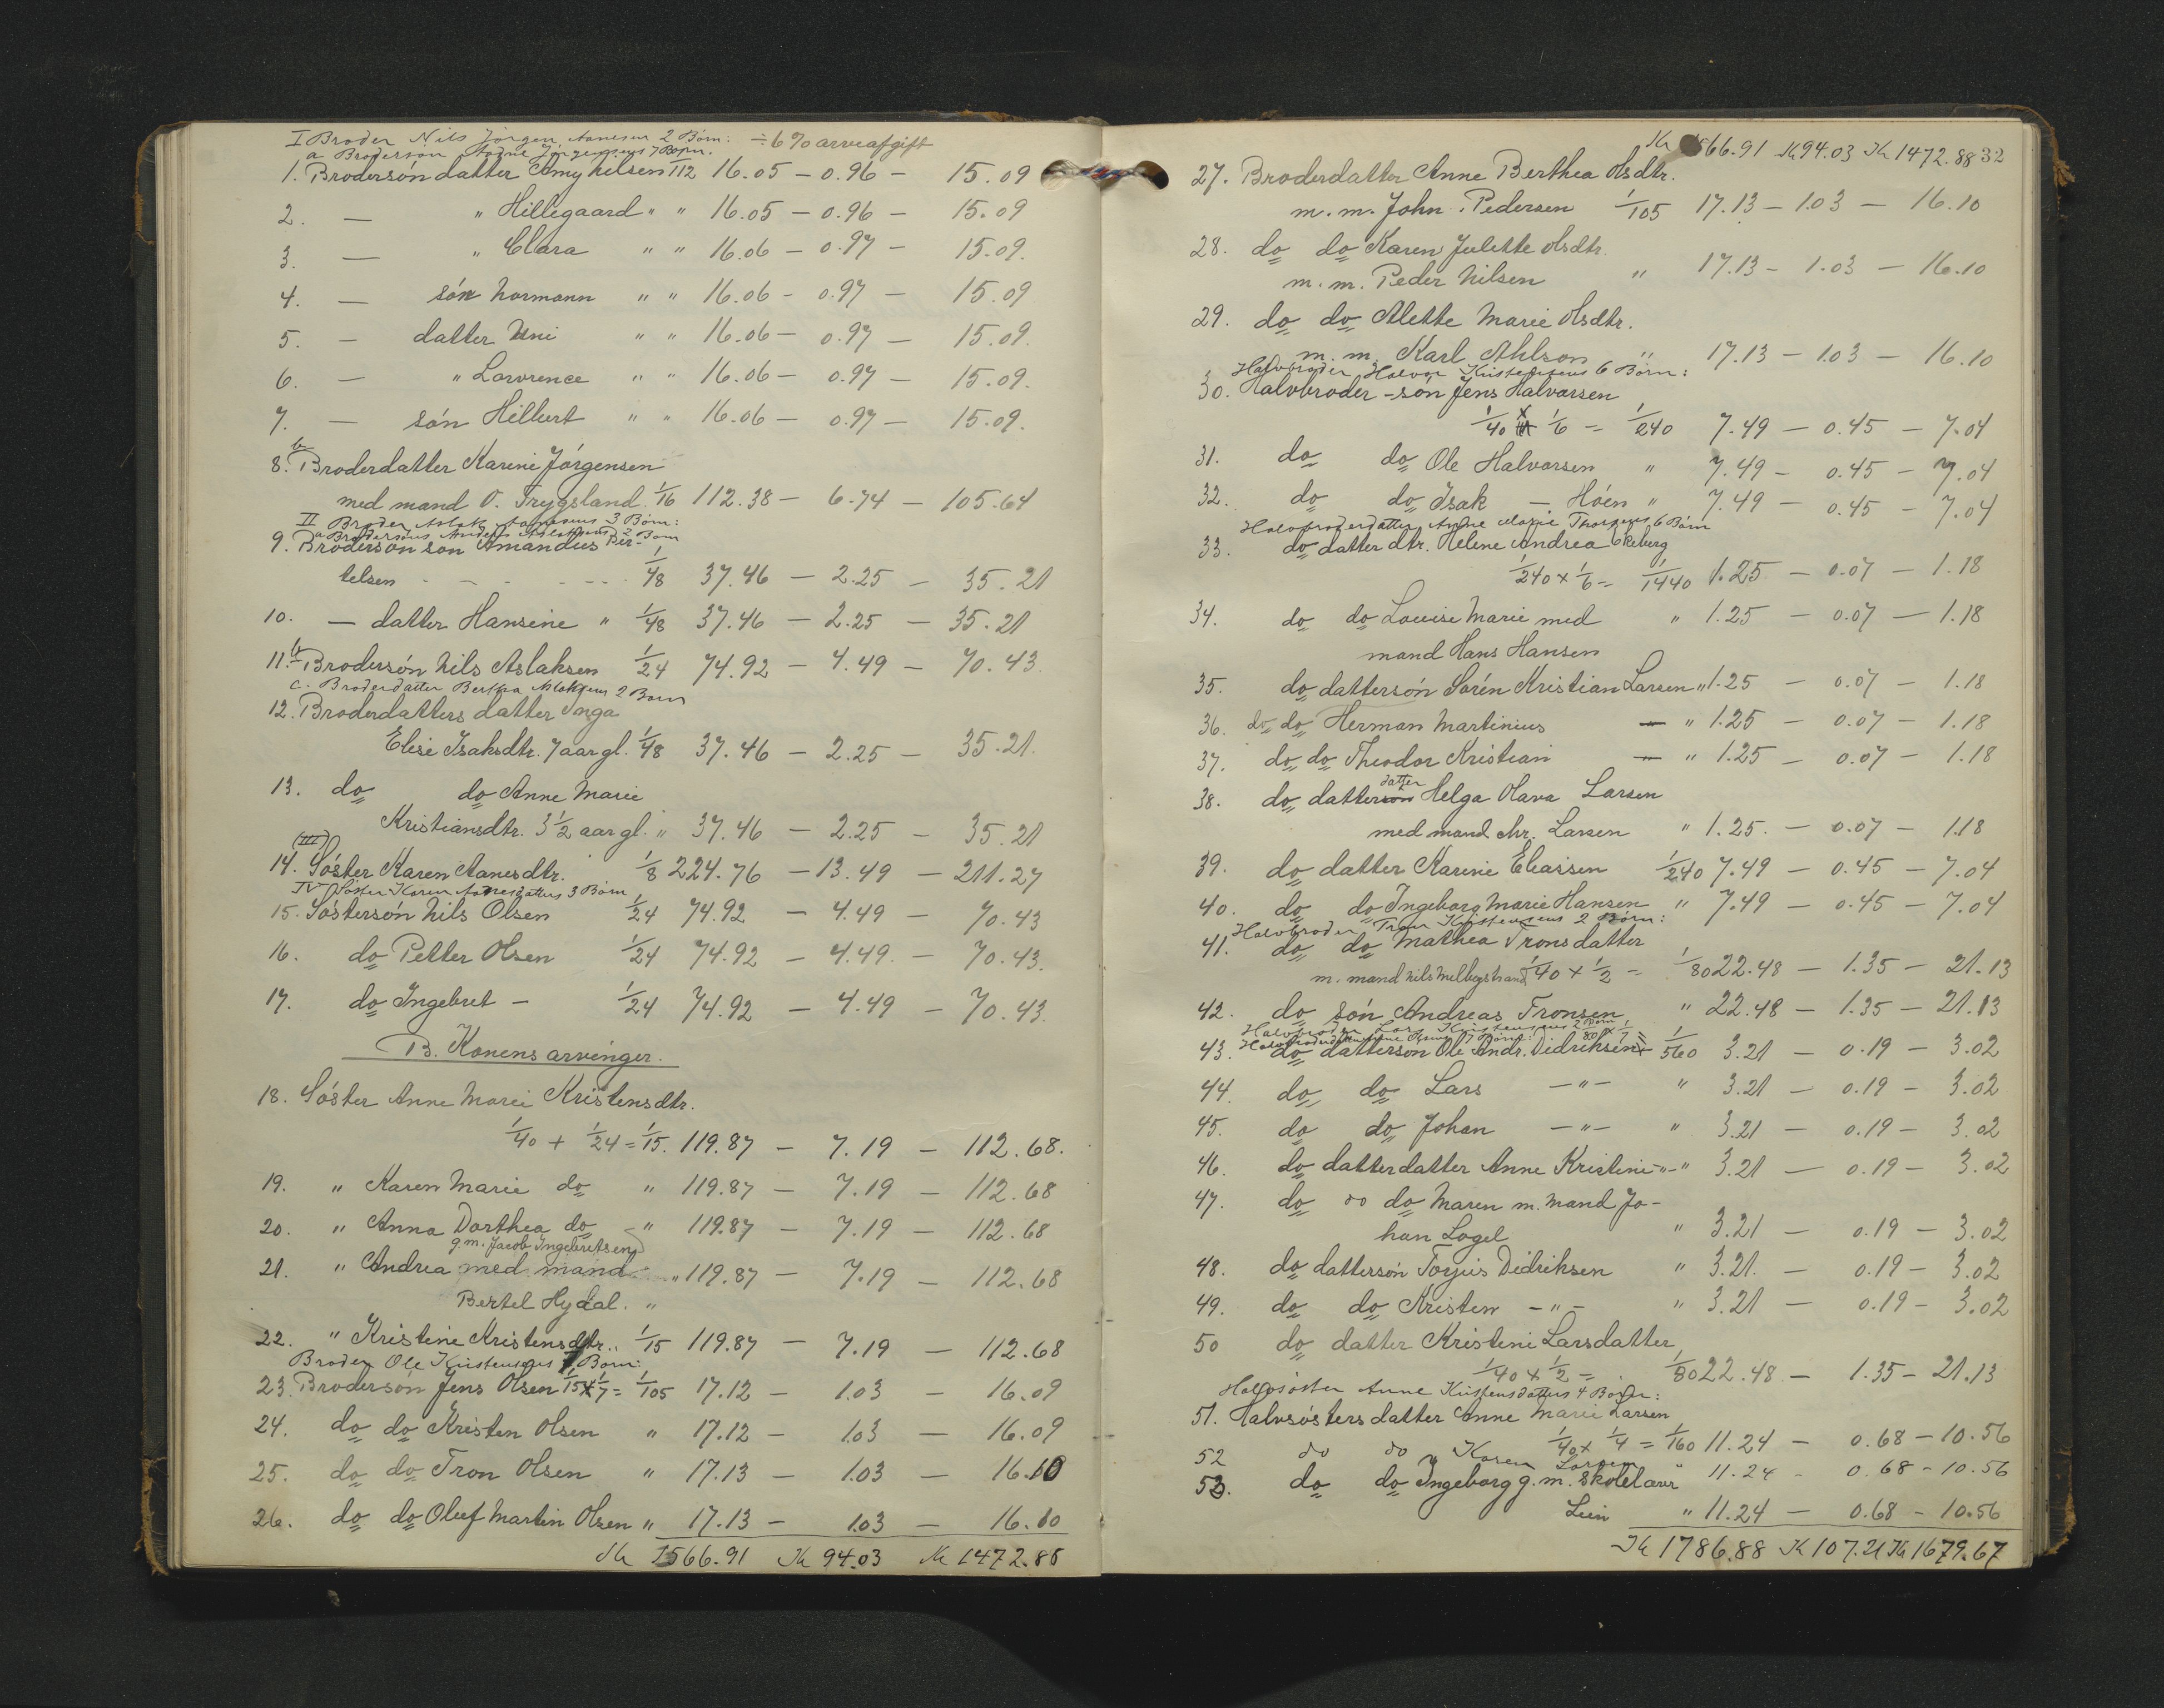 I Broder Nils Jörgen Aanesens 2 Börn: ÷ 6% arveafgift
a Broderson Aadne Jörgensens 7 Börn.
1. Brodersön datter Amy Nelsen 1/112 16.05 – 0.96 – 15.09
2. — " Hillegaard " " 16.05 – 0.96 – 15.09
3. — " Clara " " 16.06 – 0.97 – 15.09.
4. — sön Normann " " 16.06 – 0.97 – 15.09
5. — datter Uni " " 16.06 – 0.97 – 15.09.
6. — " Lawrence " " 16.06 – 0.97 – 15.09.
7. — sön Hilbert " " 16.06 – 0.97 – 15.09.
b
8. Broderdatter Karine Jörgensen
med mand O. Trygsland. 1/16 112.38 – 6.74 – 105.64
II Broder Aslak Aanesens 3 Börn:
a Brodersöns Anders Aslaksens 2 Born
9. Brodersön sön Amandus Ber-
telsen - - - - - - 1/48 37.46 – 2.25 – 35.21
10. — datter Hansine " 1/48 37.46 – 2.25 – 35.21
11. b Brodersön Nils Aslaksen 1/24 74.92 – 4.49 – 70.43.
c. Broderdatter Bertha Aslaksens 2 Born
12. Broderdatters datter Inga
Elise Isaksdtr. 7 aar gl. 1/48 37.46 – 2.25 – 35.21.
13. do do Anne Marie
Kristiansdtr. 3 1/2 aar gl. " 37.46 – 2.25 – 35.21
(III)
14. Söster Karen Aanesdtr. 1/8 224.76 – 13.49 – 211.27
IV Söster Karen Aanesdatters 3 Börn
15. Söstersön Nils Olsen 1/24 74.92 – 4.49 – 70.43
16. do Petter Olsen 1/24 74.92 – 4.49 – 70.43.
17. do Ingebret – 1/24 74.92 – 4.49 – 70.43.
B. Konens arvinger.
18. Söster Anne Marei Kristensdtr.
1/40 + 1/24 = 1/15. 119.87 – 7.19 – 112.68.
19. " Karen Marie do " 119.87 – 7.19 – 112.68
20. " Anna Dorthea do – " 119.87 – 7.19 – 112.68
g.m. Jacob Ingebretsen
21. " Andrea med mand " 119.87 – 7.19 – 112.68
Bertel Hydal. "
22. " Kristine Kristensdtr. 1/15 119.87 – 7.19 – 112.68
Broder Ole Kristensens 7 Börn:
23. Brodersön Jens Olsen 1/15 x 1/7 = 1/105 17.12 – 1.03 – 16.09
24. do do Kristen Olsen " 17.12 – 1.03 – 16.09
25. do do Tron Olsen " 17.13 – 1.03 – 16.10
26. do do Oluf Martin Olsen " 17.13 – 1.03 – 16.10
Kr 1566.91 Kr 94.03 Kr 1472.88
Kr 1566.91 Kr 94.03 Kr 1472.88 32
27. Broderdatter Anne Berthea Olsdtr.
m. m. John Pedersen 1/105 17.13 – 1.03 – 16.10
28. do do Karen Julette Olsdtr.
m. m. Peder Nilsen " 17.13 – 1.03 – 16.10
29. do do Alette Marie Olsdtr.
m. m. Karl Ahlson " 17.13 – 1.03 – 16.10
Halvbroder Halvor Kristensens 6 Börn:
30. Halvbroder – sön Jens Halvorsen
1/40 x 1/6 = 1/240 7.49 – 0.45 – 7.04
31. do do Ole Halvorsen " 7.49 – 0.45 – 7.04
32. do do Isak – Höen " 7.49 – 0.45 – 7.04
Halvbroderdatter Anne Marie Thorsens 6 Börn
33. do datter dtr. Helene Andrea Reberg
1/240 x 1/6 = 1/1440 1.25 – 0.07 – 1.18
34. do do Louise Marie med " 1.25 – 0.07 – 1.18
mand Hans Hansen
35. do dattersön Sorén Kristian Larsen " 1.25 – 0.07 – 1.18
36. do do Herman Martinius — " 1.25 – 0.07 – 1.18
37. do do Theodor Kristian — " 1.25 – 0.07 – 1.18
datter
38. do dattersön Helga Olava Larsen
med mand Chr. Larsen " 1.25. – 0.07 – 1.18
39. do datter Karine Eliassen 1/240 7.49 – 0.45 – 7.04
40. do do Ingeborg Marie Hansen " 7.49 – 0.45 – 7.04
Halvbroder Tron Kristensens 2 Börn:
41. do do Mathea Tronsdatter
m. mand Nils Melbystrand 1/40 x 1/2 = 1/80 22.48 – 1.35 – 21.13
42. do sön Andreas Tronsen " 22.48 – 1.35 – 21.13
Halvbroder Lars Kristensens 2 Börn
7 Börn 1/80 x 1/7 =
43. do dattersön Ole Andr. Didriksen 1/560 3.21 – 0.19 – 3.02
44. do do Lars – " – " 3.21 – 0.19 – 3.02
45. do do Johan – " – " 3.21 – 0.19 – 3.02
46. do datterdatter Anne Kristine – " – " 3.21 – 0.19 – 3.02
47. do do do Maren m. mand Jo-
han Logel " 3.21 – 0.19 – 3.02
48. do dattersön Torjus Didriksen " 3.21. – 0.19 – 3.02
49. do do Kristen – " – " 3.21 – 0.19 – 3.02
50 do datter Kristine Larsdatter
1/40 x 1/2 = 1/80 22.48 – 1.35 – 21.13
Halvsöster Anne Kristensdatters 4 Börn:
51. Halvsösters datter Anne Marie Larsen
1/40 x 1/4 = 1/160 11.24 – 0.68 – 10.56
52 do do " Karen Larsen " 11.24 – 0.68 – 10.56
53. do do Ingeborg g. m. skolelærer
Lein " 11.24 – 0.68 – 10.56
Kr 1786.88 Kr 107.21 Kr 1679.67